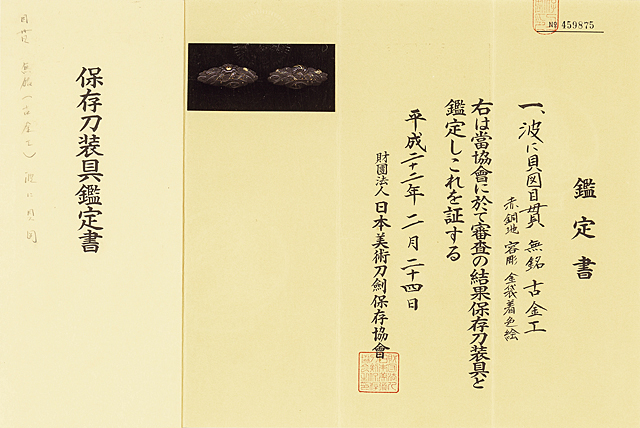 № 459875
鑑定書
一、波に貝図目貫 無銘 古金工
赤銅地 容彫 金袋着色絵
右は當協會に於て審査の結果保存刀装具と
鑑定しこれを証する
平成二十二年二月二十四日
財團法人 日本美術刀劍保存協會
保存刀装具鑑定書
目貫 無銘(古金工) 波に貝図